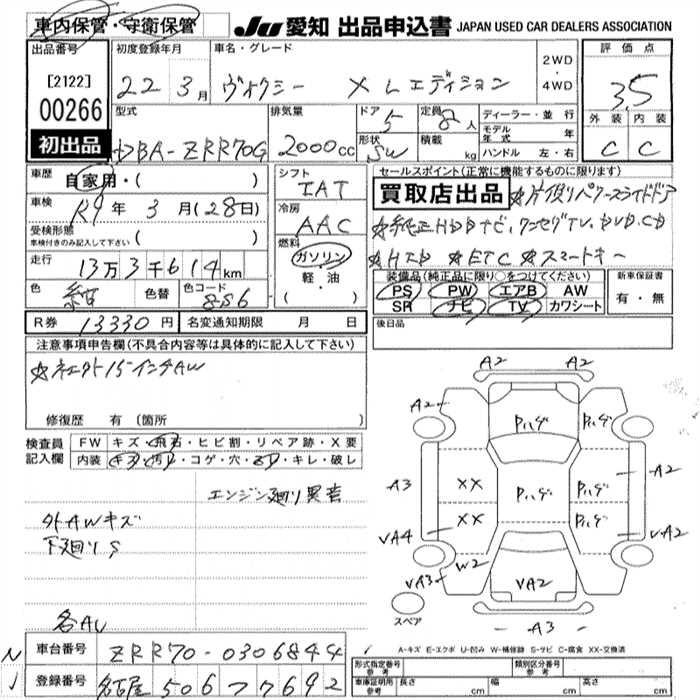 車内保管・守衛保管
JU 愛知 出品申込書 JAPAN USED CAR DEALERS ASSOCIATION
出品番号
[2122]
00266
初出品
初度登録年月
22 3月
車名・グレード
ヴォクシー X Lエディション
2WD
・
4WD
評価点
3.5
外装 内装
C C
型式
DBA-ZRR70G
排気量
2000cc
ドア
5
形状
SW
定員
8人
積載
kg
ディーラー・並行
モデル年式 年
ハンドル 左・右
車歴
自家用・( )
車検
R9年 3月(28日)
受検形態
車検付きのみ記入して下さい ( )
走行
13万3千614km
色
紺
色替
色コード
8S6
シフト
IAT
冷房
AAC
燃料
ガソリン
軽・油
( )
セールスポイント(正常に機能するものに限ります)
買取店出品 ☆片側パワースライドドア
☆純正HDDナビ、ワンセグTV、DVD、CD
☆HID ☆ETC ☆スマートキー
装備品(純正品に限り○をつけてください)
PS PW エアB AW
SR ナビ TV カワシート
新車保証書
有・無
後日品
R券 13330円
名変通知期限 月 日
注意事項申告欄(不具合内容等は具体的に記入して下さい)
☆社外15インチAW
修復歴 有 〔箇所 〕
検査員
記入欄
FW キズ・飛石・ヒビ割・リペア跡・X要
内装 キズ・汚れ・コゲ・穴・スレ・キレ・破レ
エンジン廻り異音
外AWキズ
下廻りS
各AU
A2 A2
A2 Pハゲ Pハゲ
A3 XX Pハゲ Pハゲ A2
VA4 XX Pハゲ VA2
VA3 W2 VA2 A2
スペア
A3
A-キズ E-エクボ U-凹み W-補修跡 S-サビ C-腐食 XX-交換済
車台番号 ZRR70-0306844
登録番号 名古屋 506 ス 7692
形式指定番号 参考
類別区分番号 参考
車庫証明用 参考 長さ cm 幅 cm 高さ cm